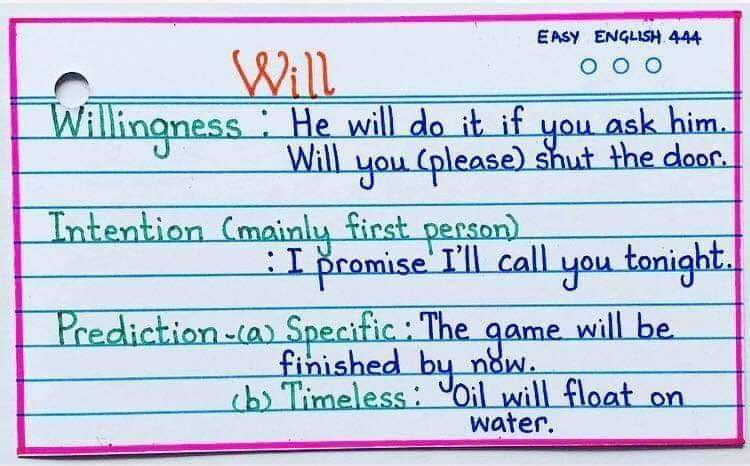 EASY ENGLISH 444
Will
Willingness : He will do it if you ask him.
Will you (please) shut the door.
Intention (mainly first person)
: I promise I'll call you tonight.
Prediction -(a) Specific : The game will be
finished by now.
(b) Timeless : Oil will float on
water.